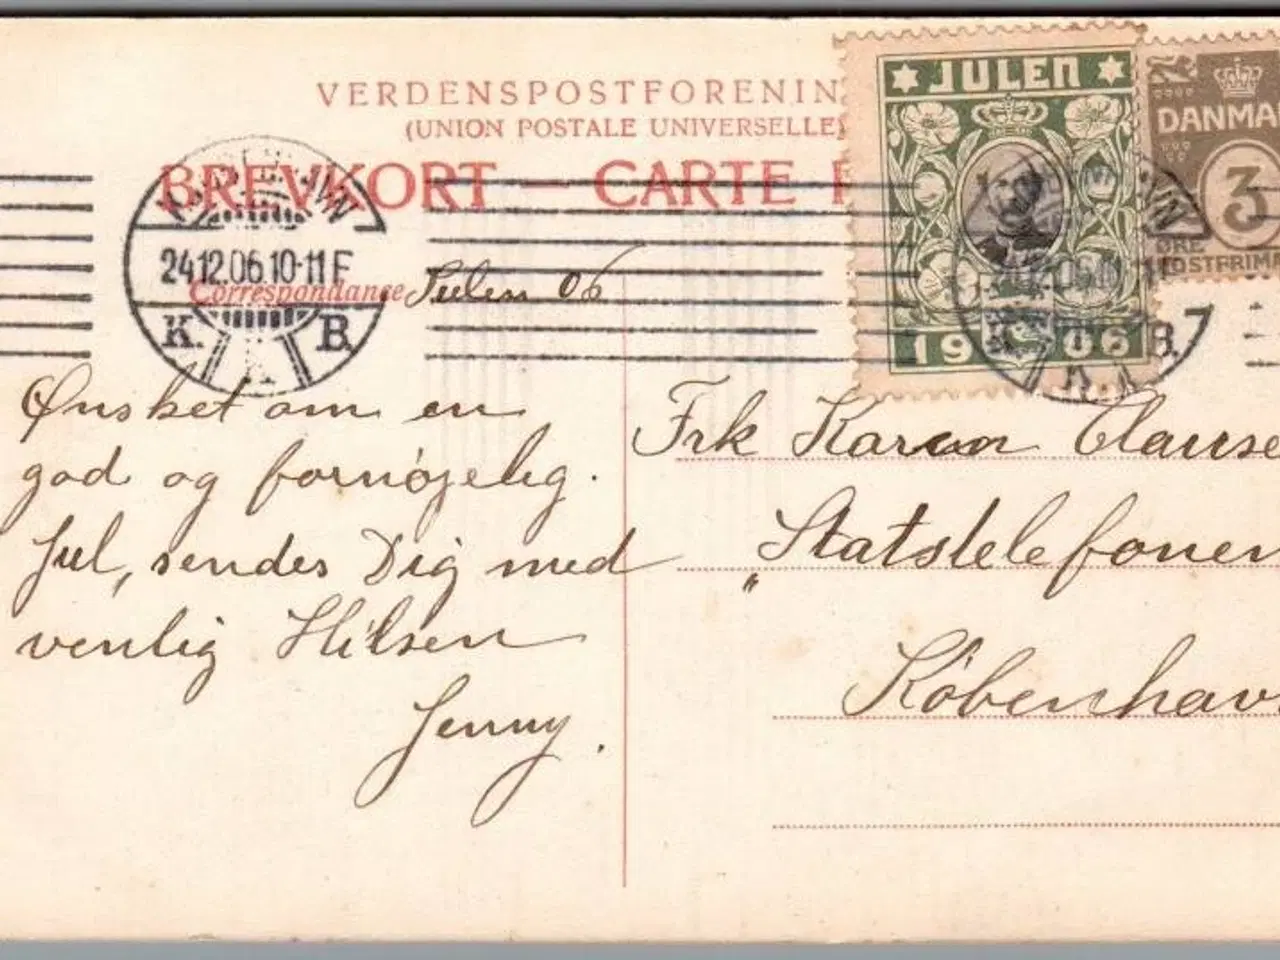 VERDENSPOSTFORENIN
(UNION POSTALE UNIVERSELLE)
BREVKORT — CARTE P
JULEN
1906
DANMA
3
ØRE
POSTFRIM
24.12.06.10-11 F
K. B.
Correspondance
Julen 06
Ønsket om en
god og fornøjelig.
Jul, sendes Dig med
venlig Hilsen
Jenny.
Frk Karen Clause
"Statstelefonen
Københav